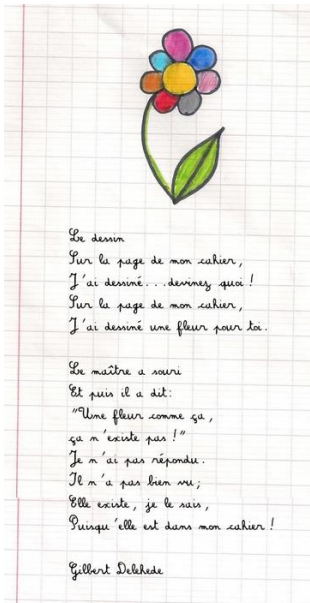 Le dessin
Sur la page de mon cahier,
J'ai dessiné...devinez quoi !
Sur la page de mon cahier,
J'ai dessiné une fleur pour toi.
Le maître a souri
Et puis il a dit:
"Une fleur comme ça,
ça n'existe pas !"
Je n'ai pas répondu.
Il n'a pas bien vu;
Elle existe, je le sais,
Puisqu'elle est dans mon cahier !
Gilbert Delehede